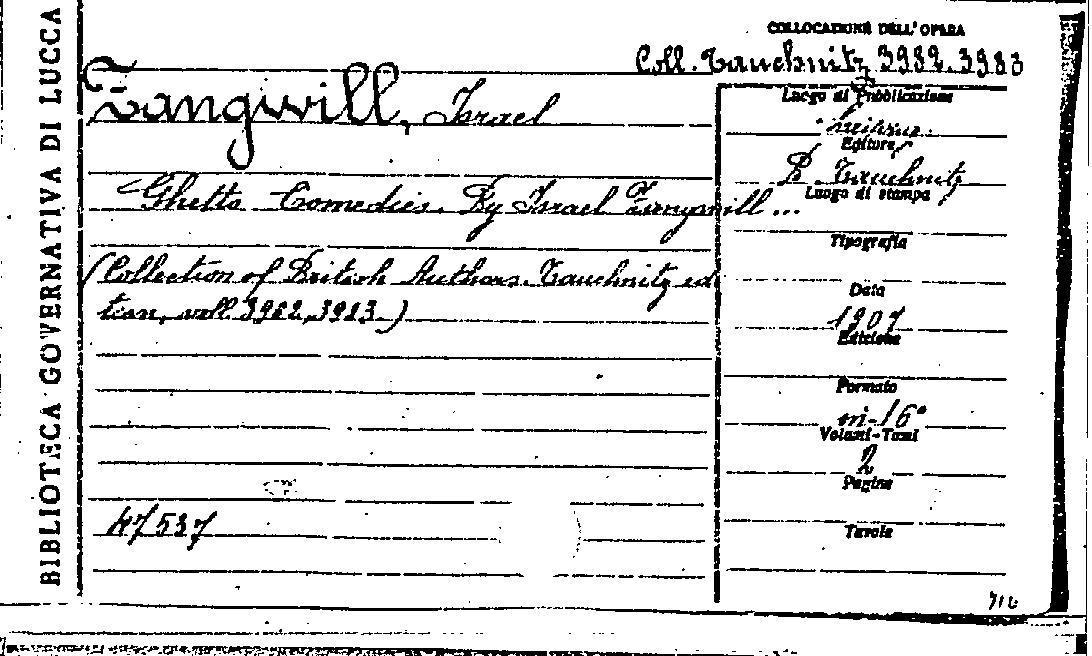 BIBLIOTECA GOVERNATIVA DI LUCCA
COLLOCAZIONE DELL'OPERA
Coll. Tauchnitz 3982.3983
Zangwill, Israel
Ghetto Comedies. By Israel Zangwill ...
(Collection of British Authors. Tauchnitz edi
tion, voll 3982, 3983.)
47537
Luogo di Pubblicazione
Editore
B. Tauchnitz
Luogo di stampa
Tipografia
Data
1907
Edizione
Formato
in-16°
Volumi-Tomi
2
Pagine
Tavole